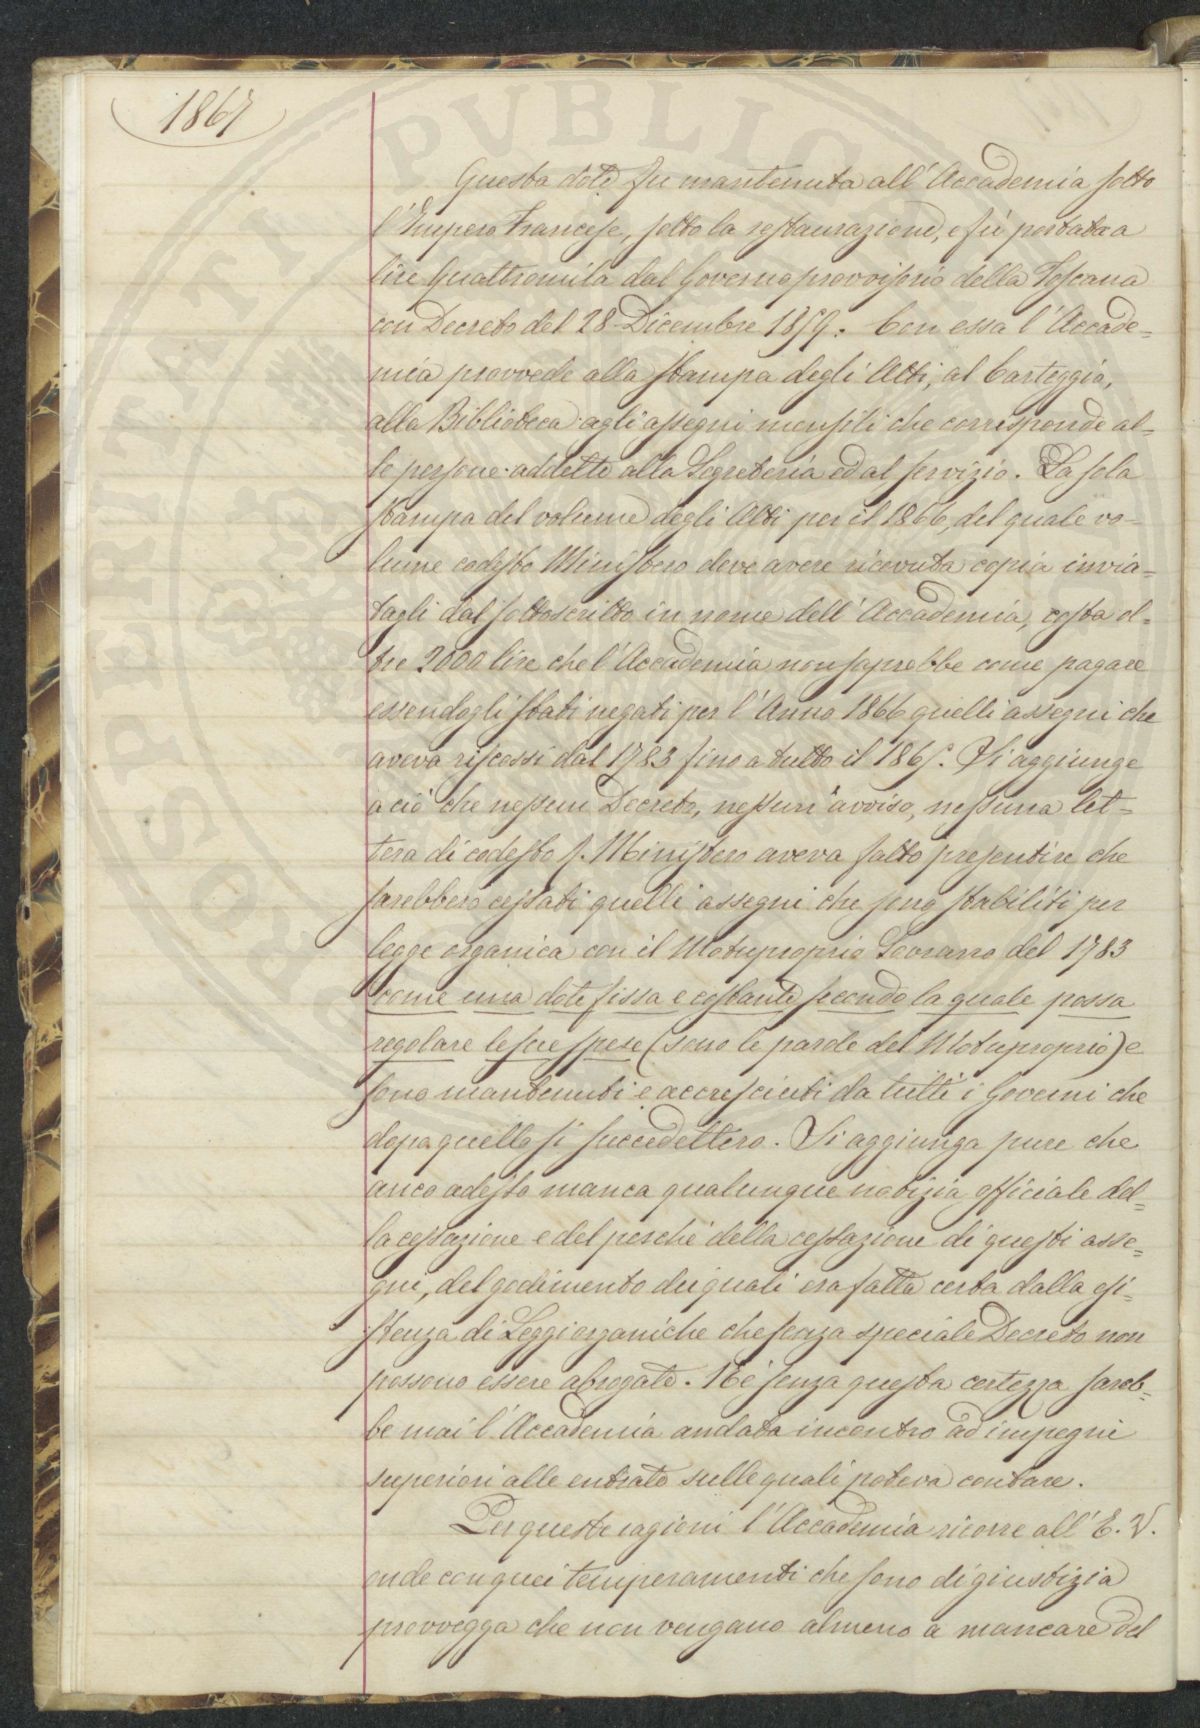 1867
Questa dote fu mantenuta all'Accademia sotto
l'Impero Francese, sotto la restaurazione, e fù portata a
lire Quattromila dal Governo provvisorio della Toscana
con Decreto del 28 Dicembre 1859. Con essa l'Accade=
mia provvede alla stampa degli Atti, al Carteggio,
alla Biblioteca agli assegni mensili che corrisponde al=
le persone addette alla Segreteria ed al servizio. La sola
stampa del volume degli Atti per il 1866, del quale vo=
lume codesto Ministero deve avere ricevuta copia invia=
tagli dal sottoscritto in nome dell'Accademia, costa ol=
tre 2000 lire che l'Accademia non saprebbe come pagare
essendogli stati negati per l'Anno 1866 quelli assegni che
aveva riscossi dal 1783 fino a tutto il 1865. Si aggiunge
a ciò che nessun Decreto, nessun'avviso, nessuna let=
tera di codesto S. Ministero aveva fatto presentire che
sarebbero cessati quelli assegni che sono stabiliti per
legge organica con il Motuproprio Sovrano del 1783
come una dote fissa e costante secondo la quale possa
regolare le sue spese (sono le parole del Motuproprio) e
sono mantenuti e accresciuti da tutti i Governi che
dopo quello si succedettero. Si aggiunga pure che
anco adesso manca qualunque notizia officiale del=
la cessazione e del perché della cessazione di questi asse=
gni, del godimento dei quali era fatta certa dalla esi=
stenza di Leggi organiche che senza speciale Decreto non
possono essere abrogate. Né senza questa certezza sareb=
be mai l'Accademia andata incontro ad impegni
superiori alle entrate sulle quali poteva contare.
Per queste ragioni l'Accademia ricorre all'E. V.
onde con quei temperamenti che sono di giustizia
provvegga che non vengano almeno a mancare del
PROSPERITATI PVBLICAE